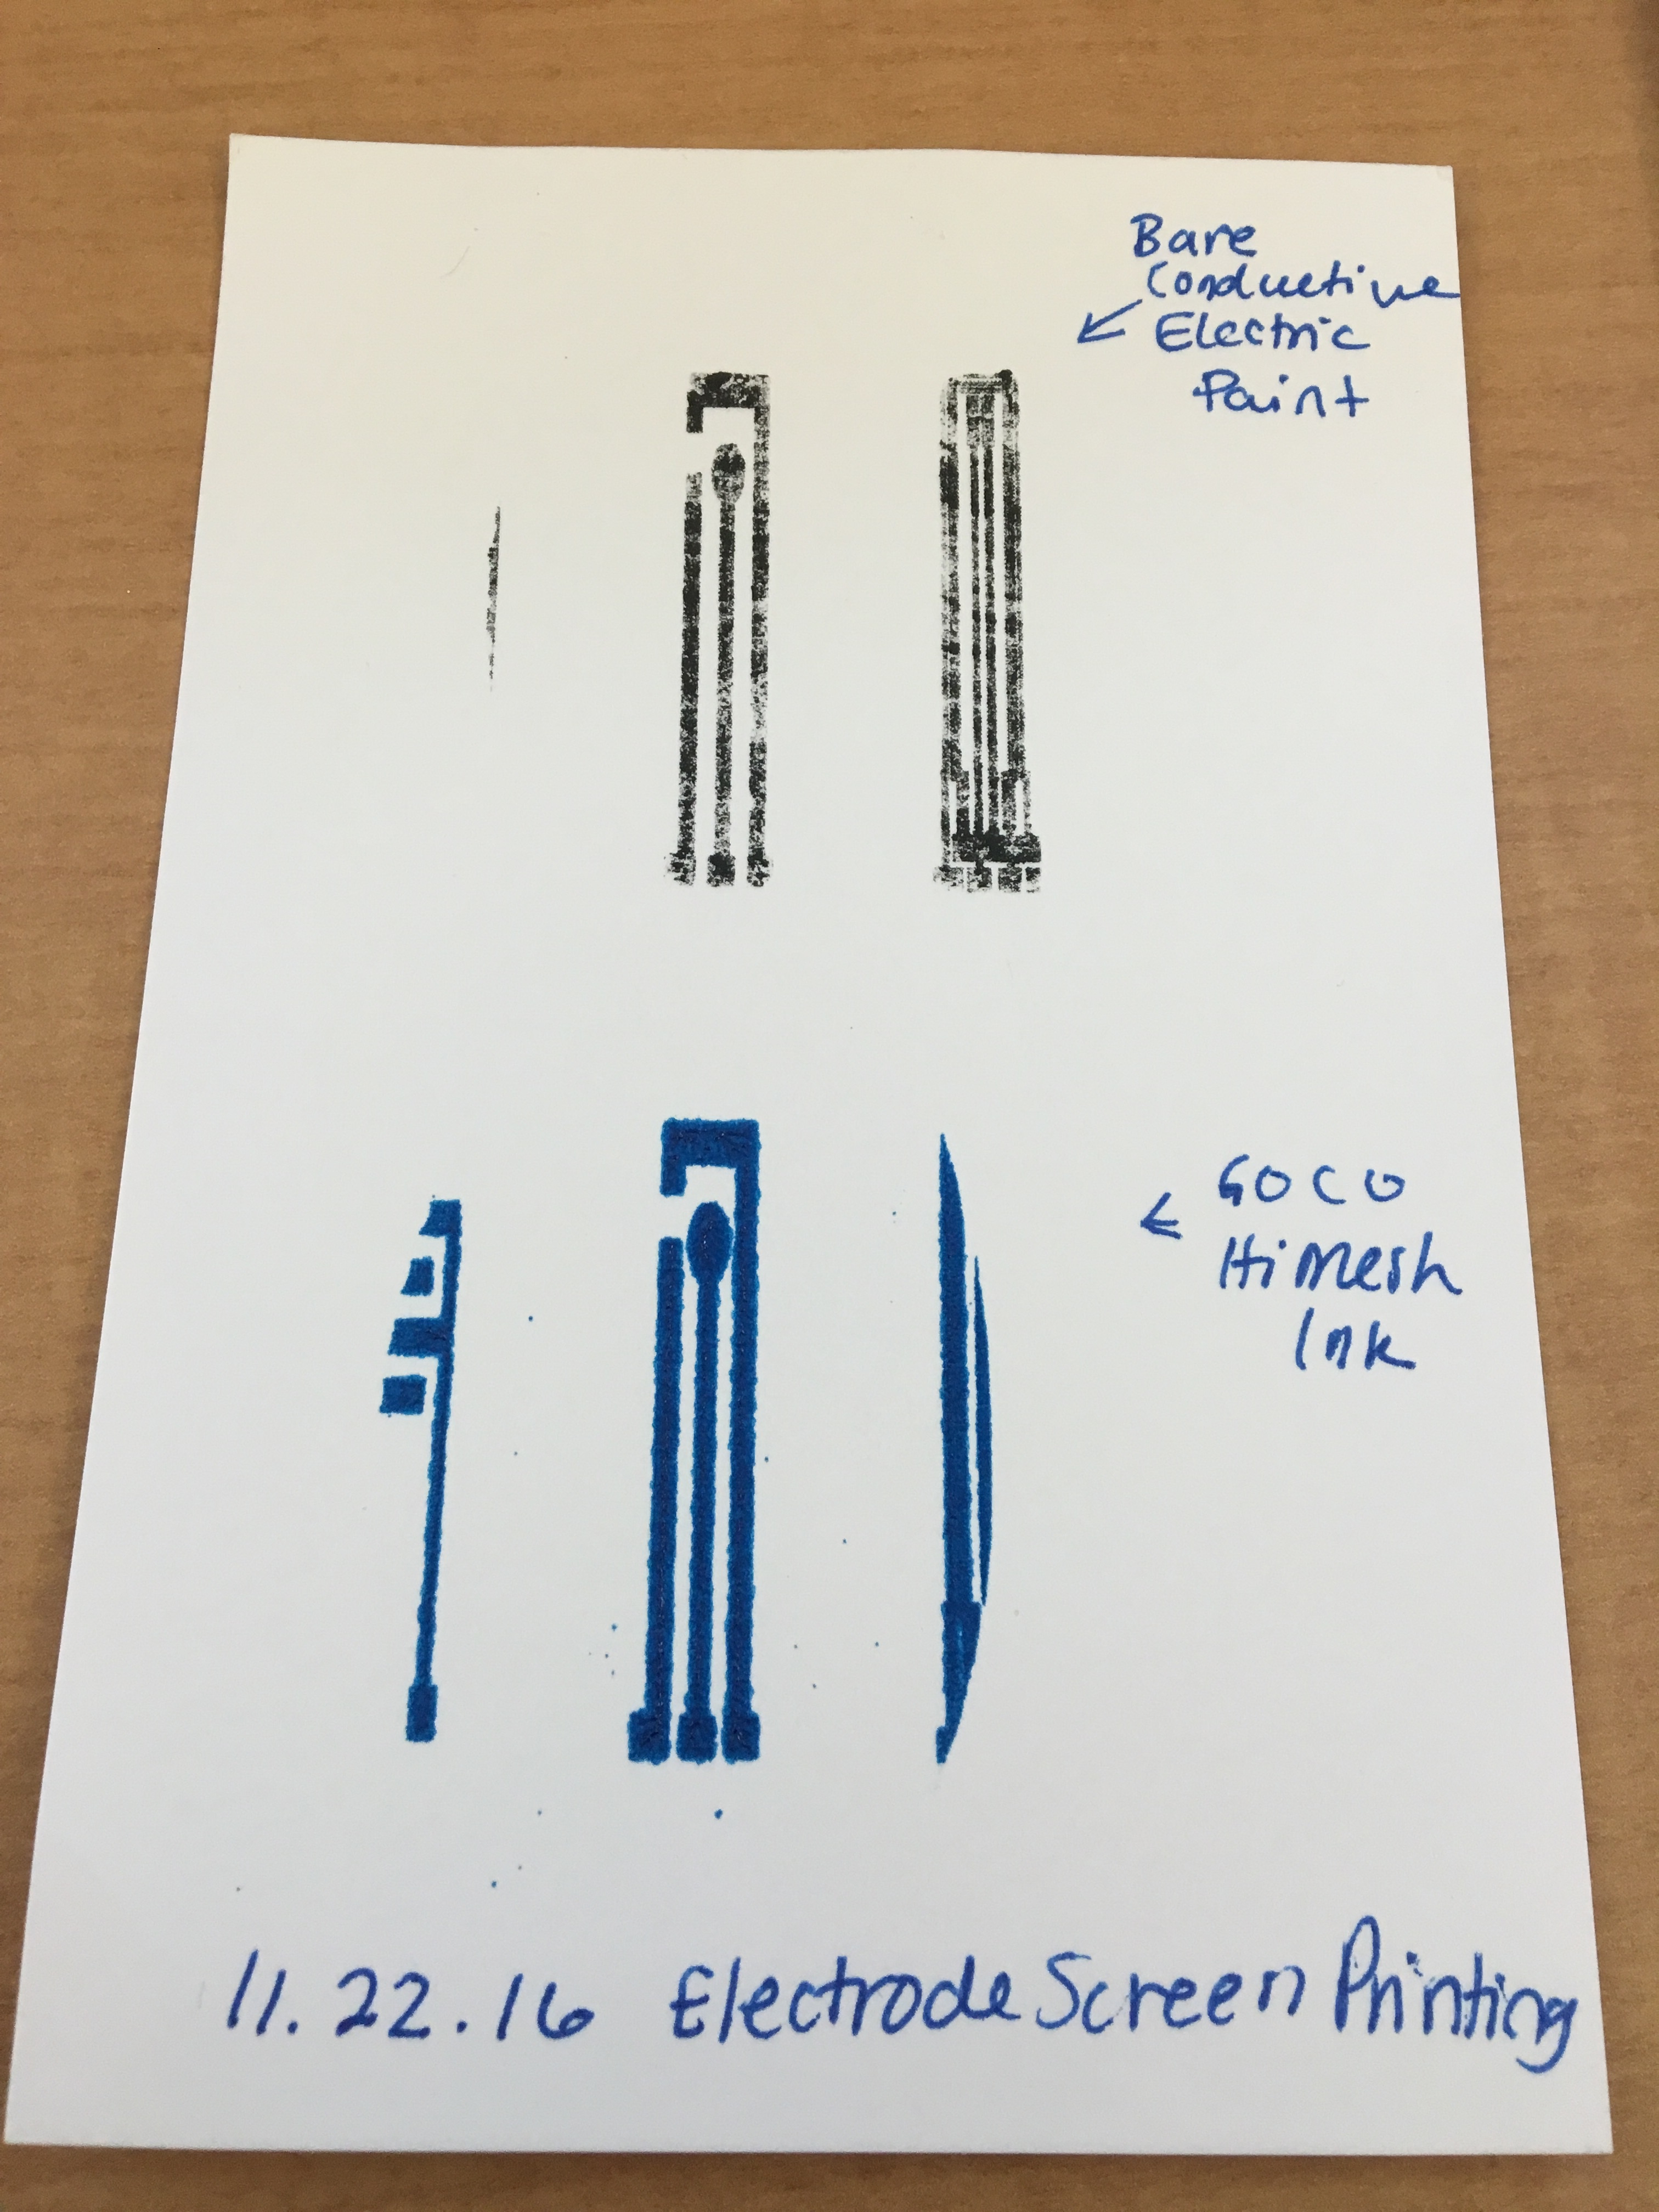 Bare
Conductive
Electric
Paint
GOCO
HiMesh
Ink
11.22.16 Electrode Screen Printing